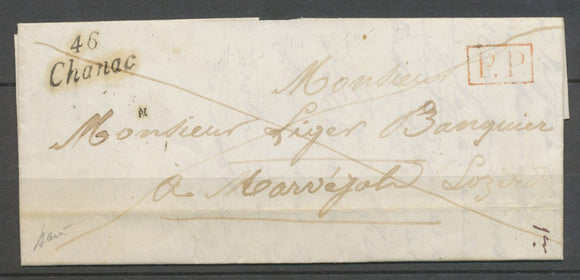 46
Chanac
P.P.
Monsieur
Monsieur Liger Banquier
à Marvéjols Lozère